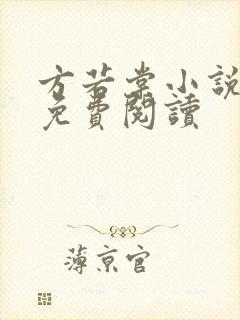 方若棠小說
免費閱讀
薄京官